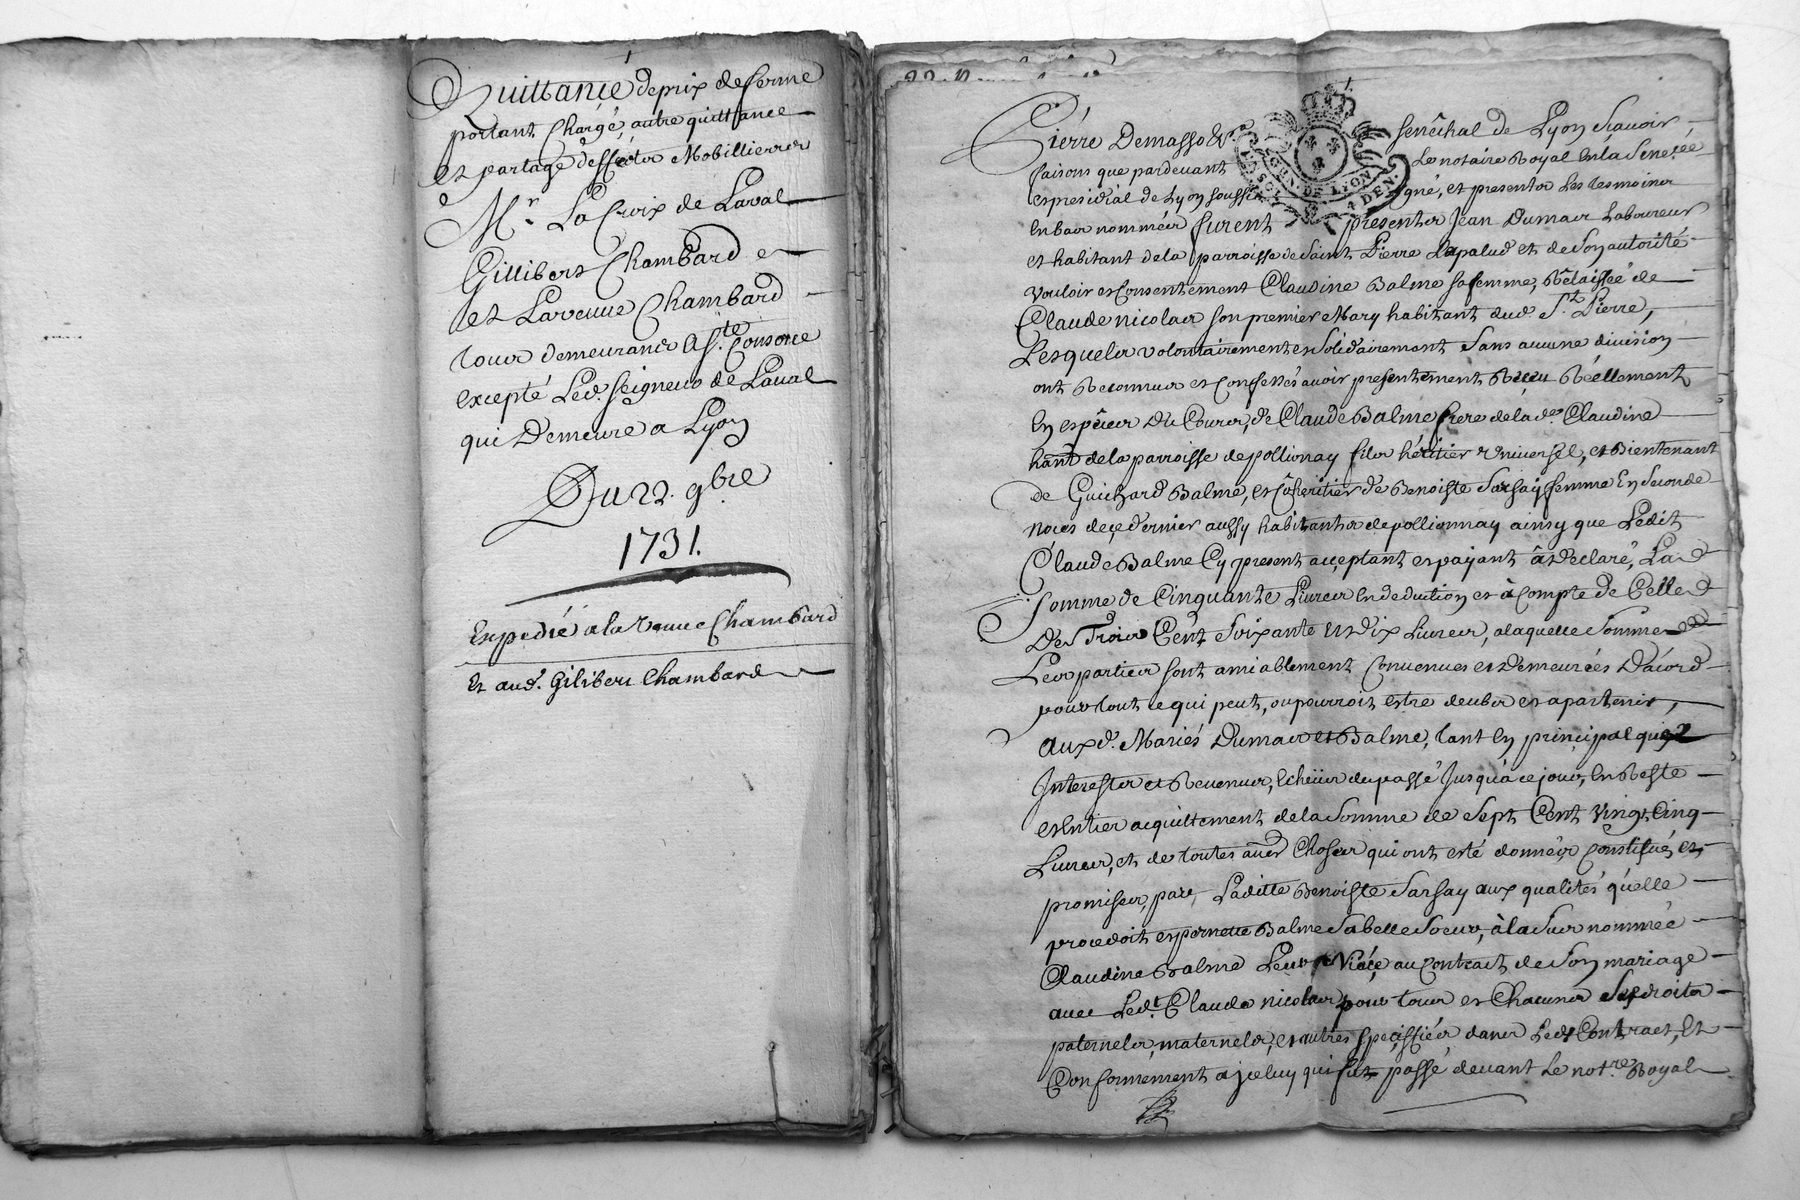 Quittance de prix de ferme
portant Chargé, autre quittance
et partage d'effects Mobilliers
Mr. La Croix de Laval
Gillibert Chambard
et La veuve Chambard
tous demeurants a Ste. Consorce
excepté Led. seigneur de Laval
qui Demeure a Lyon
Du 22. 9bre
1731.
Expedié a la veuve Chambard
Et aud. Gilibert Chambard
Pierre Demasso senéchal de Lyon Scavoir
faisons que pardevant Le notaire Royal En la Senéée
et presidial de Lyon soussigné, et presents Les tesmoins
En bas nommés furent presents Jean Dumas Laboureur
et habitant de la parroisse de Saint Pierre Lapalud et de Son autorité
vouloir et Consentement Claudine Balme sa femme, Délaissée de
Claude nicolas son premier Mary habitant dud. St. Pierre,
Lesquels volontairement et Solidairement Sans aucune division
ont Reconnus et Confessés avoir presentement Receu Réellement
En espéces Du Cours, de Claude Balme frere de la de. Claudine
hant. de la parroisse de pollionay fils héritier Universel, et Bientenant
de Guichard Balme, et Coheritier de Benoiste Sarsay femme En Seconde
noces de ce dernier aussy habitants de pollionnay ainsy que Ledit
Claude Balme Cy present acceptant et payant à Declaré, La
Somme de Cinquante Livres En deduction et à Compte de Celle
De Trois Cent Soixante Et dix Livres, a laquelle Somme
Les parties sont amiablement Convenues et Demeurées D'acord
pour tout ce qui peut, ou pourroit estre deub et apartenir,
aux d. Mariés Dumas et Balme, tant En principal que
Interests et Revenus, Echeus du passé Jusqu'a ce jour, En Reste
et Entier acquittement de la Somme de Sept Cent Vingt Cinq
Livres, et de toutes aues Choses qui ont esté données Constitués et
promises, par Laditte Benoiste Sarsay aux qualités qu'elle
procedoit et pernette Balme Sa belle Soeur, à la Sus nommée
Claudine Balme Leur Niéce au Contract de Son mariage
avec Led.t Claude nicolas pour tous et Chacuns Ses droits
paternels, maternels, et autres speciffiés dans Led. Contract, Et
Conformement a jceluy qui fut passé devant Le notre Royal
GEN. DE LYON